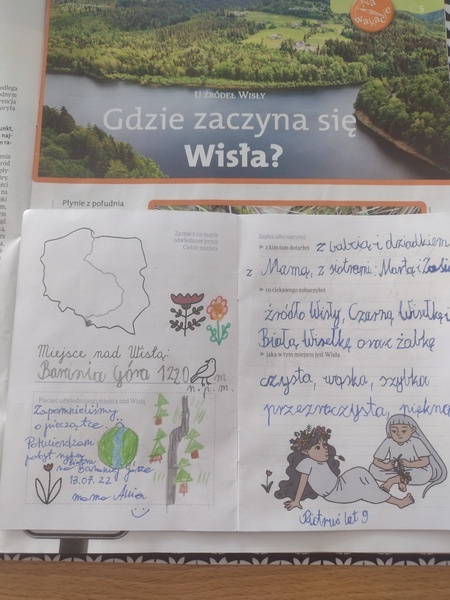 Na
wakacje
5
U ŹRÓDEŁ WISŁY
Gdzie zaczyna się
Wisła?
Płynie z południa
Zaznacz na mapie
odwiedzone przez
Ciebie miejsce
Miejsce nad Wisłą:
Barania Góra 1220 m
n.p.m.
Pieczęć odwiedzonego miejsca nad Wisłą
Zapomnieliśmy
o pieczątce.
Potwierdzam
pobyt syna
na Baraniej Górze
13.07.22
mama Alicja
z kim tam dotarłeś
z babcią i dziadkiem
z Mamą, z siostrami: Martą i Zosią
co ciekawego zobaczyłeś
źródło Wisły, Czarną Wisełkę i
Białą Wisełkę oraz żabkę
jaka w tym miejscu jest Wisła
czysta, wąska, szybka
przezroczysta, piękna
Piotruś lat 9